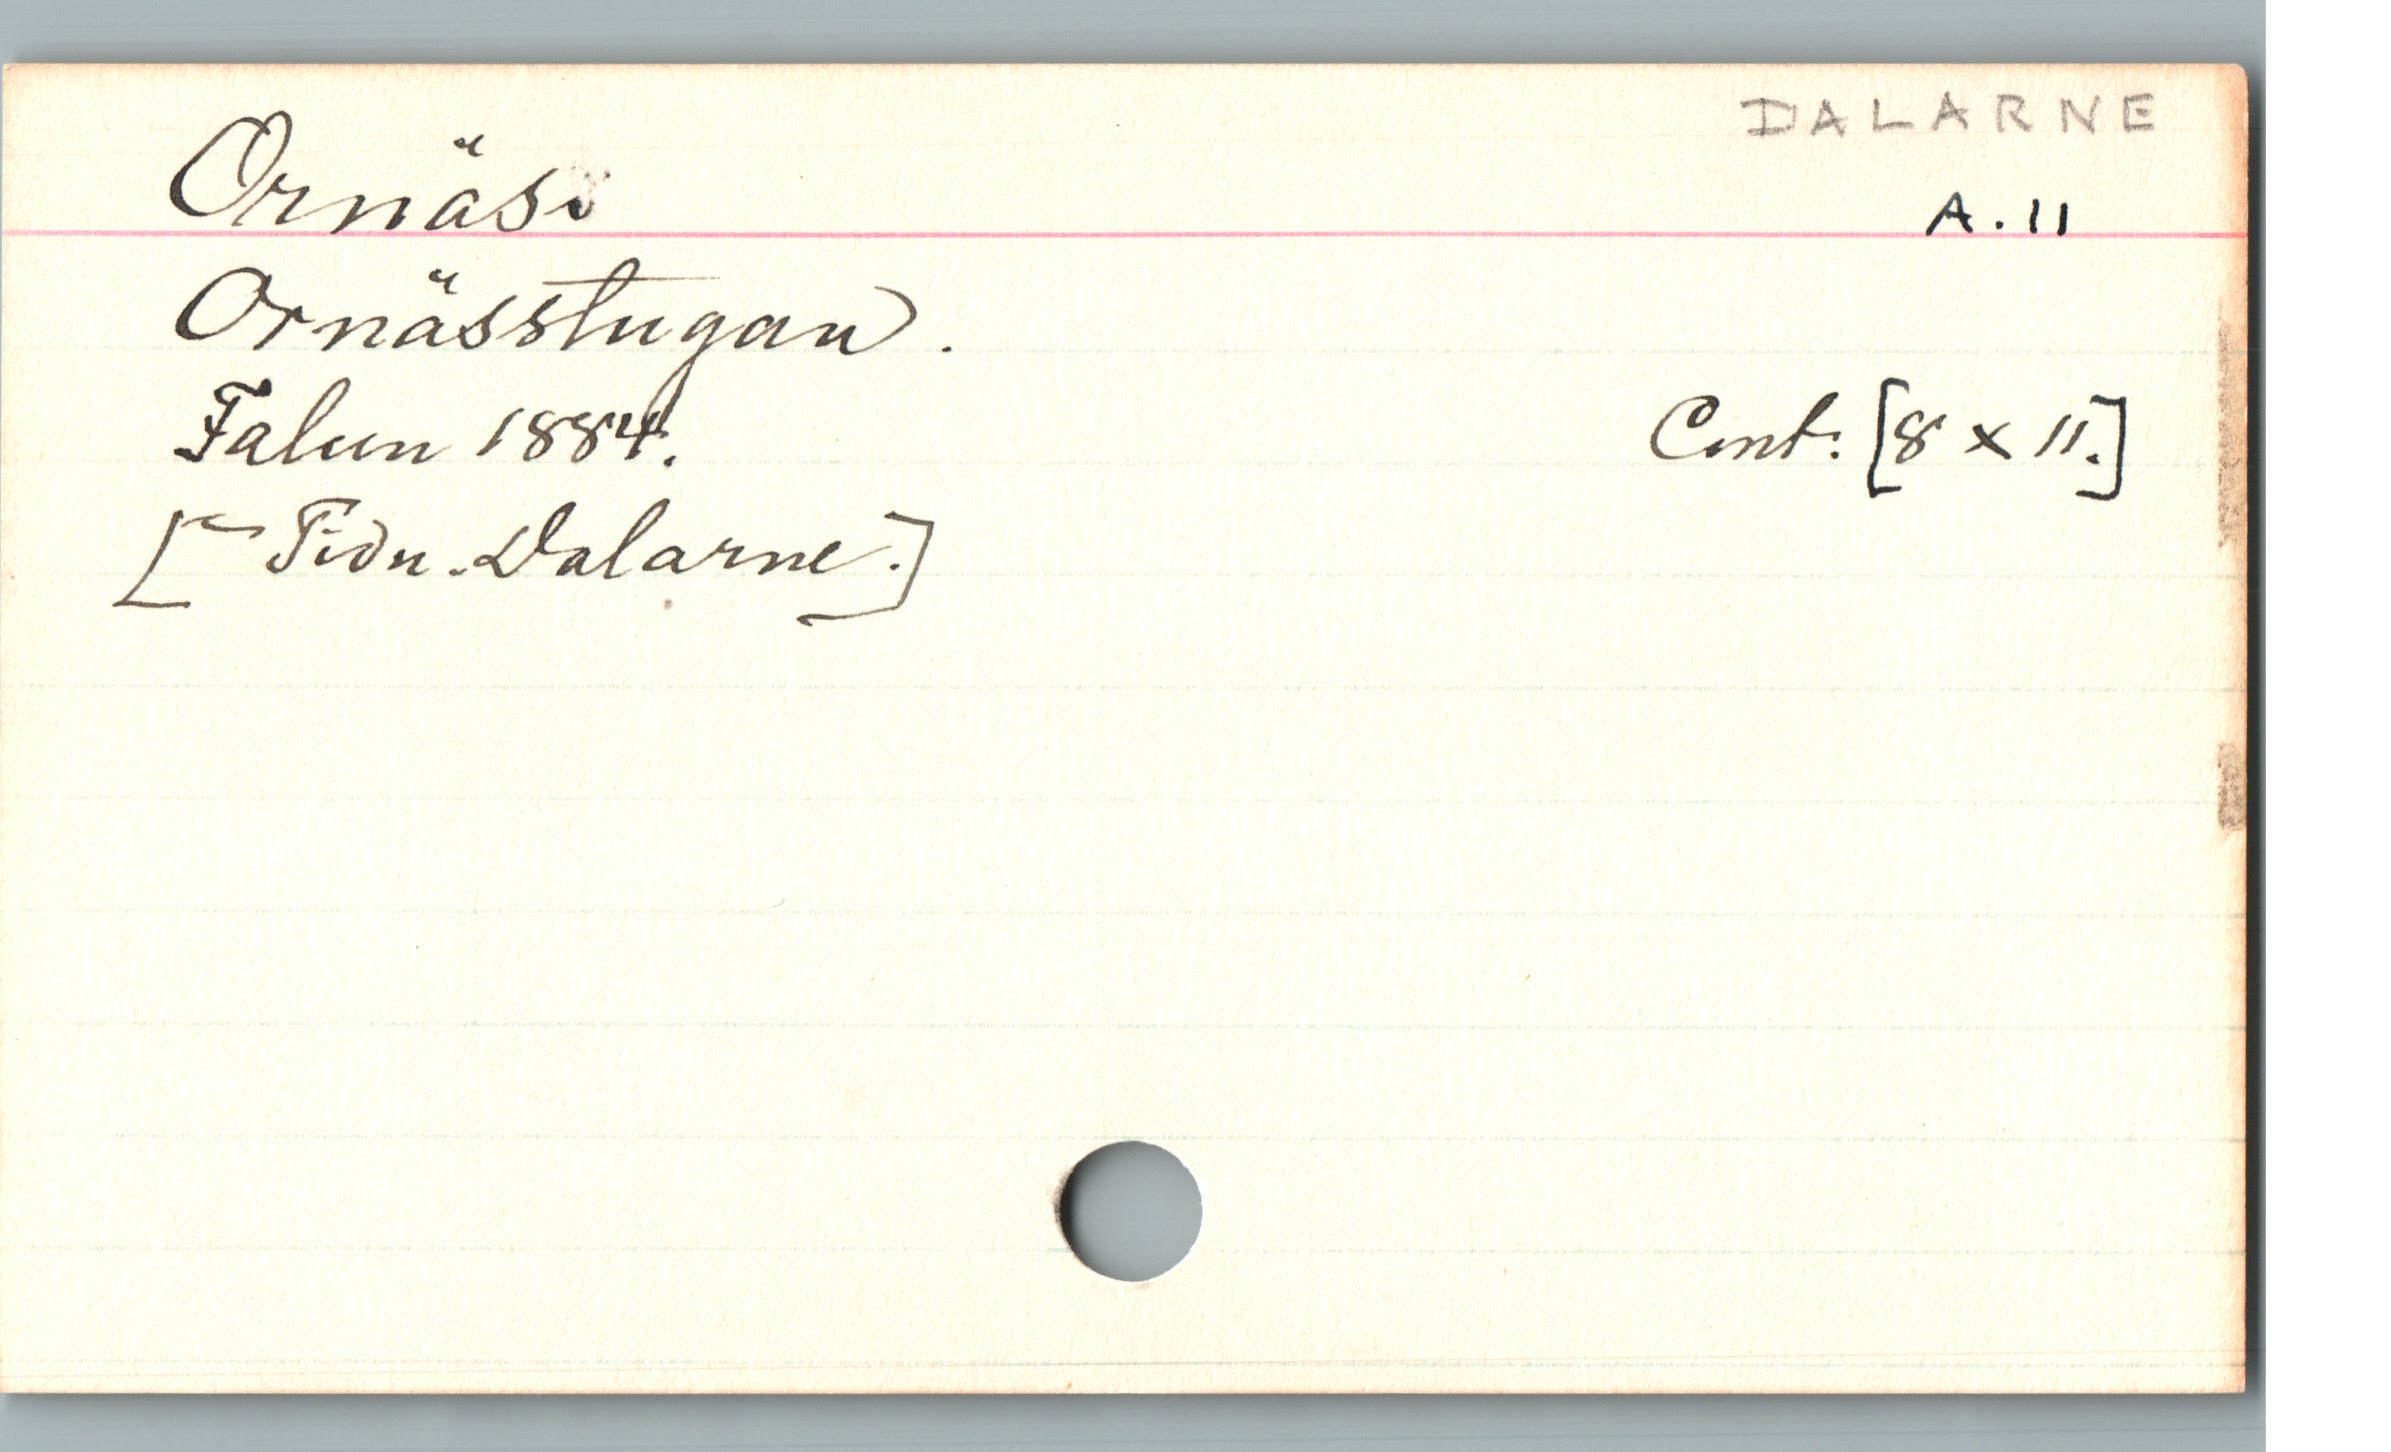 DALARNE
Ornäs.
A. 11
Ornässtugan.
Falun 1884.
Cent: [8 x 11.]
[= Tidn. Dalarne.]